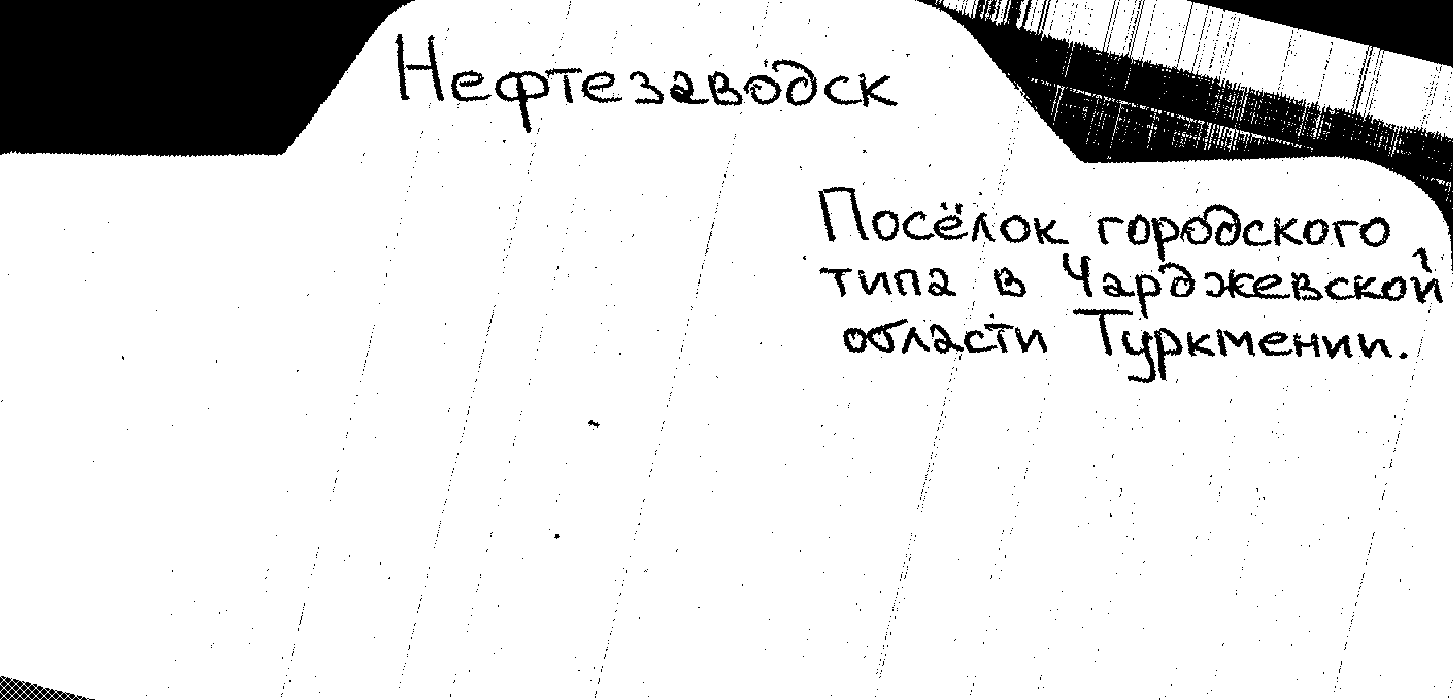 Нефтезаводск
Посёлок городского
типа в Чарджевской
области Туркмении.